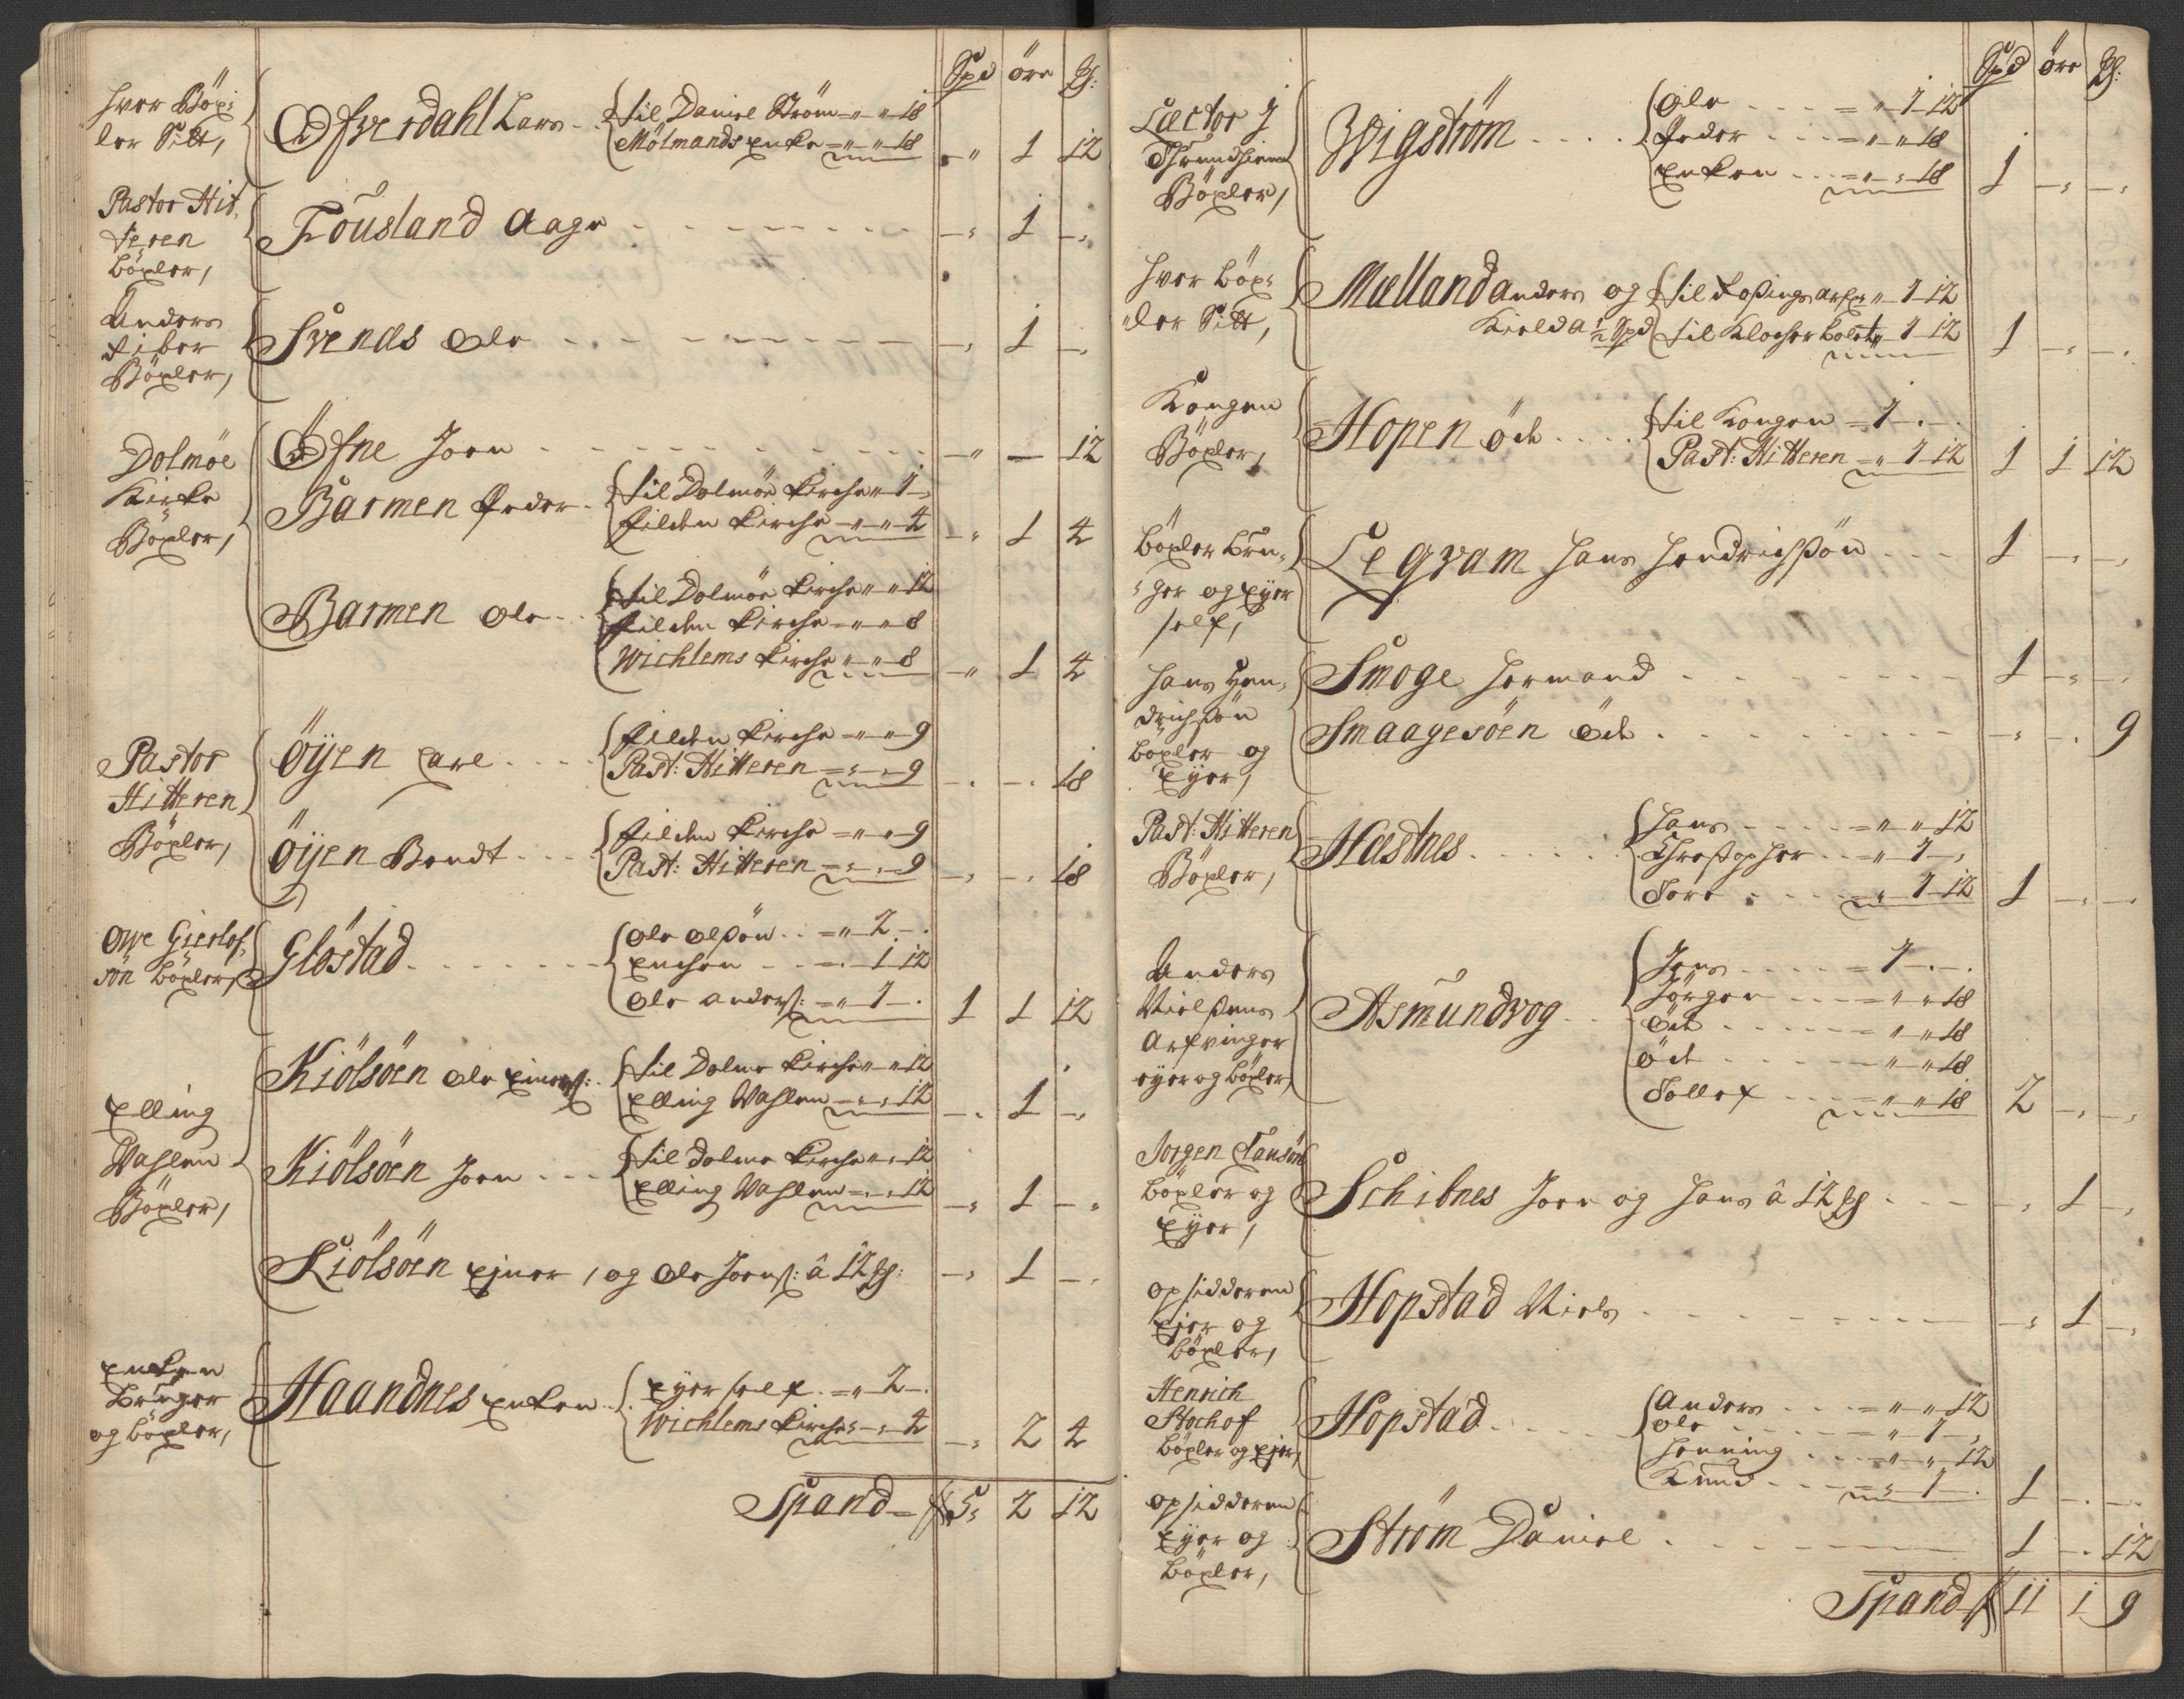 Spd öre
hver Böx-
ler Sitt,
Øfverdahl Lars
til Daniel Ström - " - " 18
Mölmands Enke - " - " 18
" 1 12
Pastor Hit-
teren
böxler,
Föusland Aage - 1 -
Anders
Fiber
Böxler,
Svends Ole - 1 -
Dolmöe
Kirke
Böxler,
Øfne Joen - - 12
Barmen Peder
til Dolmöe Kirche " 1 -
Filden Kirche - " - " 4
- 1 4
Barmen Ole
til Dolmöe Kirche " " 12
Filden Kirche - " " 8
Wichlems Kirche " " 8
- 1 4
Pastor
Hitteren
Böxler,
Öÿen Carl
Filden Kirche - " " 9
Past: Hitteren - " - 9
- - 18
Öÿen Bendt
Filden Kirche - " " 9
Past: Hitteren - " - 9
- - 18
Owe Gierlof-
sön böxler,
Glöstad
Ole Olßön - " 2 -
Enchen - 1 12
Ole Anderß: - " 1 -
1 1 12
Elling
Wahlen
Böxler,
Kiölsöen Ole Einerß:
til Dolme Kirche " - " 12
Elling Wahlen - " 12
- 1 -
Kiölsöen Joen
til Dolme Kirche " " 12
Elling Wahlen - " 12
- 1 -
Kiölsöen Ejner, og Ole Joenß: â 12 - 1 -
Enken
bruger
og böxler,
Haandnes Enken
Eyer self - " 2 -
Wichlems Kirche - " 4
- 2 4
Spand 5 2 12
Spd öre
Lector I
Thrundhiem
Böxler,
Wigström
Ole - " 1 12
Peder - " " 18
Enken - " 18
1 - -
hver böx-
ler Sitt,
Mælland Anders og
Kield a ½ Spd
til arfve " 1 12
til Klocher bolet " 1 12
1 - -
Kongen
Böxler,
Hopen Öde
til Kongen - 1 -
Past: Hitteren - " 1 12
1 1 12
böxler brü-
ger og Eyer
self,
Legvam Hans Hendrichßön 1 - -
Hans Hen-
drichßön
böxler og
Eyer,
Smoge Hermand 1 - -
Smaagesöen Öde - - 9
Past: Hitteren
Böxler,
Hæstnes
Hans - " " 12
Christopher - " 1 -
Tore - " 1 12
1 - -
Anders
Nielßens
Arfvinger
eyer og böxler,
Asmundvog
Jens - 1 - -
Jörgen - " " 18
Öde - " " 18
Öde - " " 18
Tollef - " " 18
2 - -
Jörgen Clausön
böxler og
Eyer,
Schibnes Joen og Hans â 12 - 1 -
opsidderen
Ejer og
böxler,
Hopstad Niels - 1 -
Henrich
Stochof
böxler og Ejer,
Hopstad
Anders - " " 12
Ole - " 1 -
Henning - " " 12
Knud - " 1 -
1 - -
opsidderen
Eyer og
böxler,
Ström Daniel 1 - 12
Spand 11 1 9